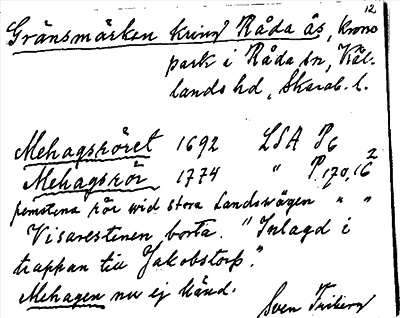 12
Gränsmärken kring Råda ås, krono
park i Råda sn, Käl-
lands hd, Skarab. l.
Mehagsröret 1692 LSA P6
Mehagsrör 1774 " P170,16²
femstena rör wid stora Landswägen " "
Visarestenen borta. "Inlagd i
trappan till Jakobstorp."
Mehagen nu ej känd.
Sven